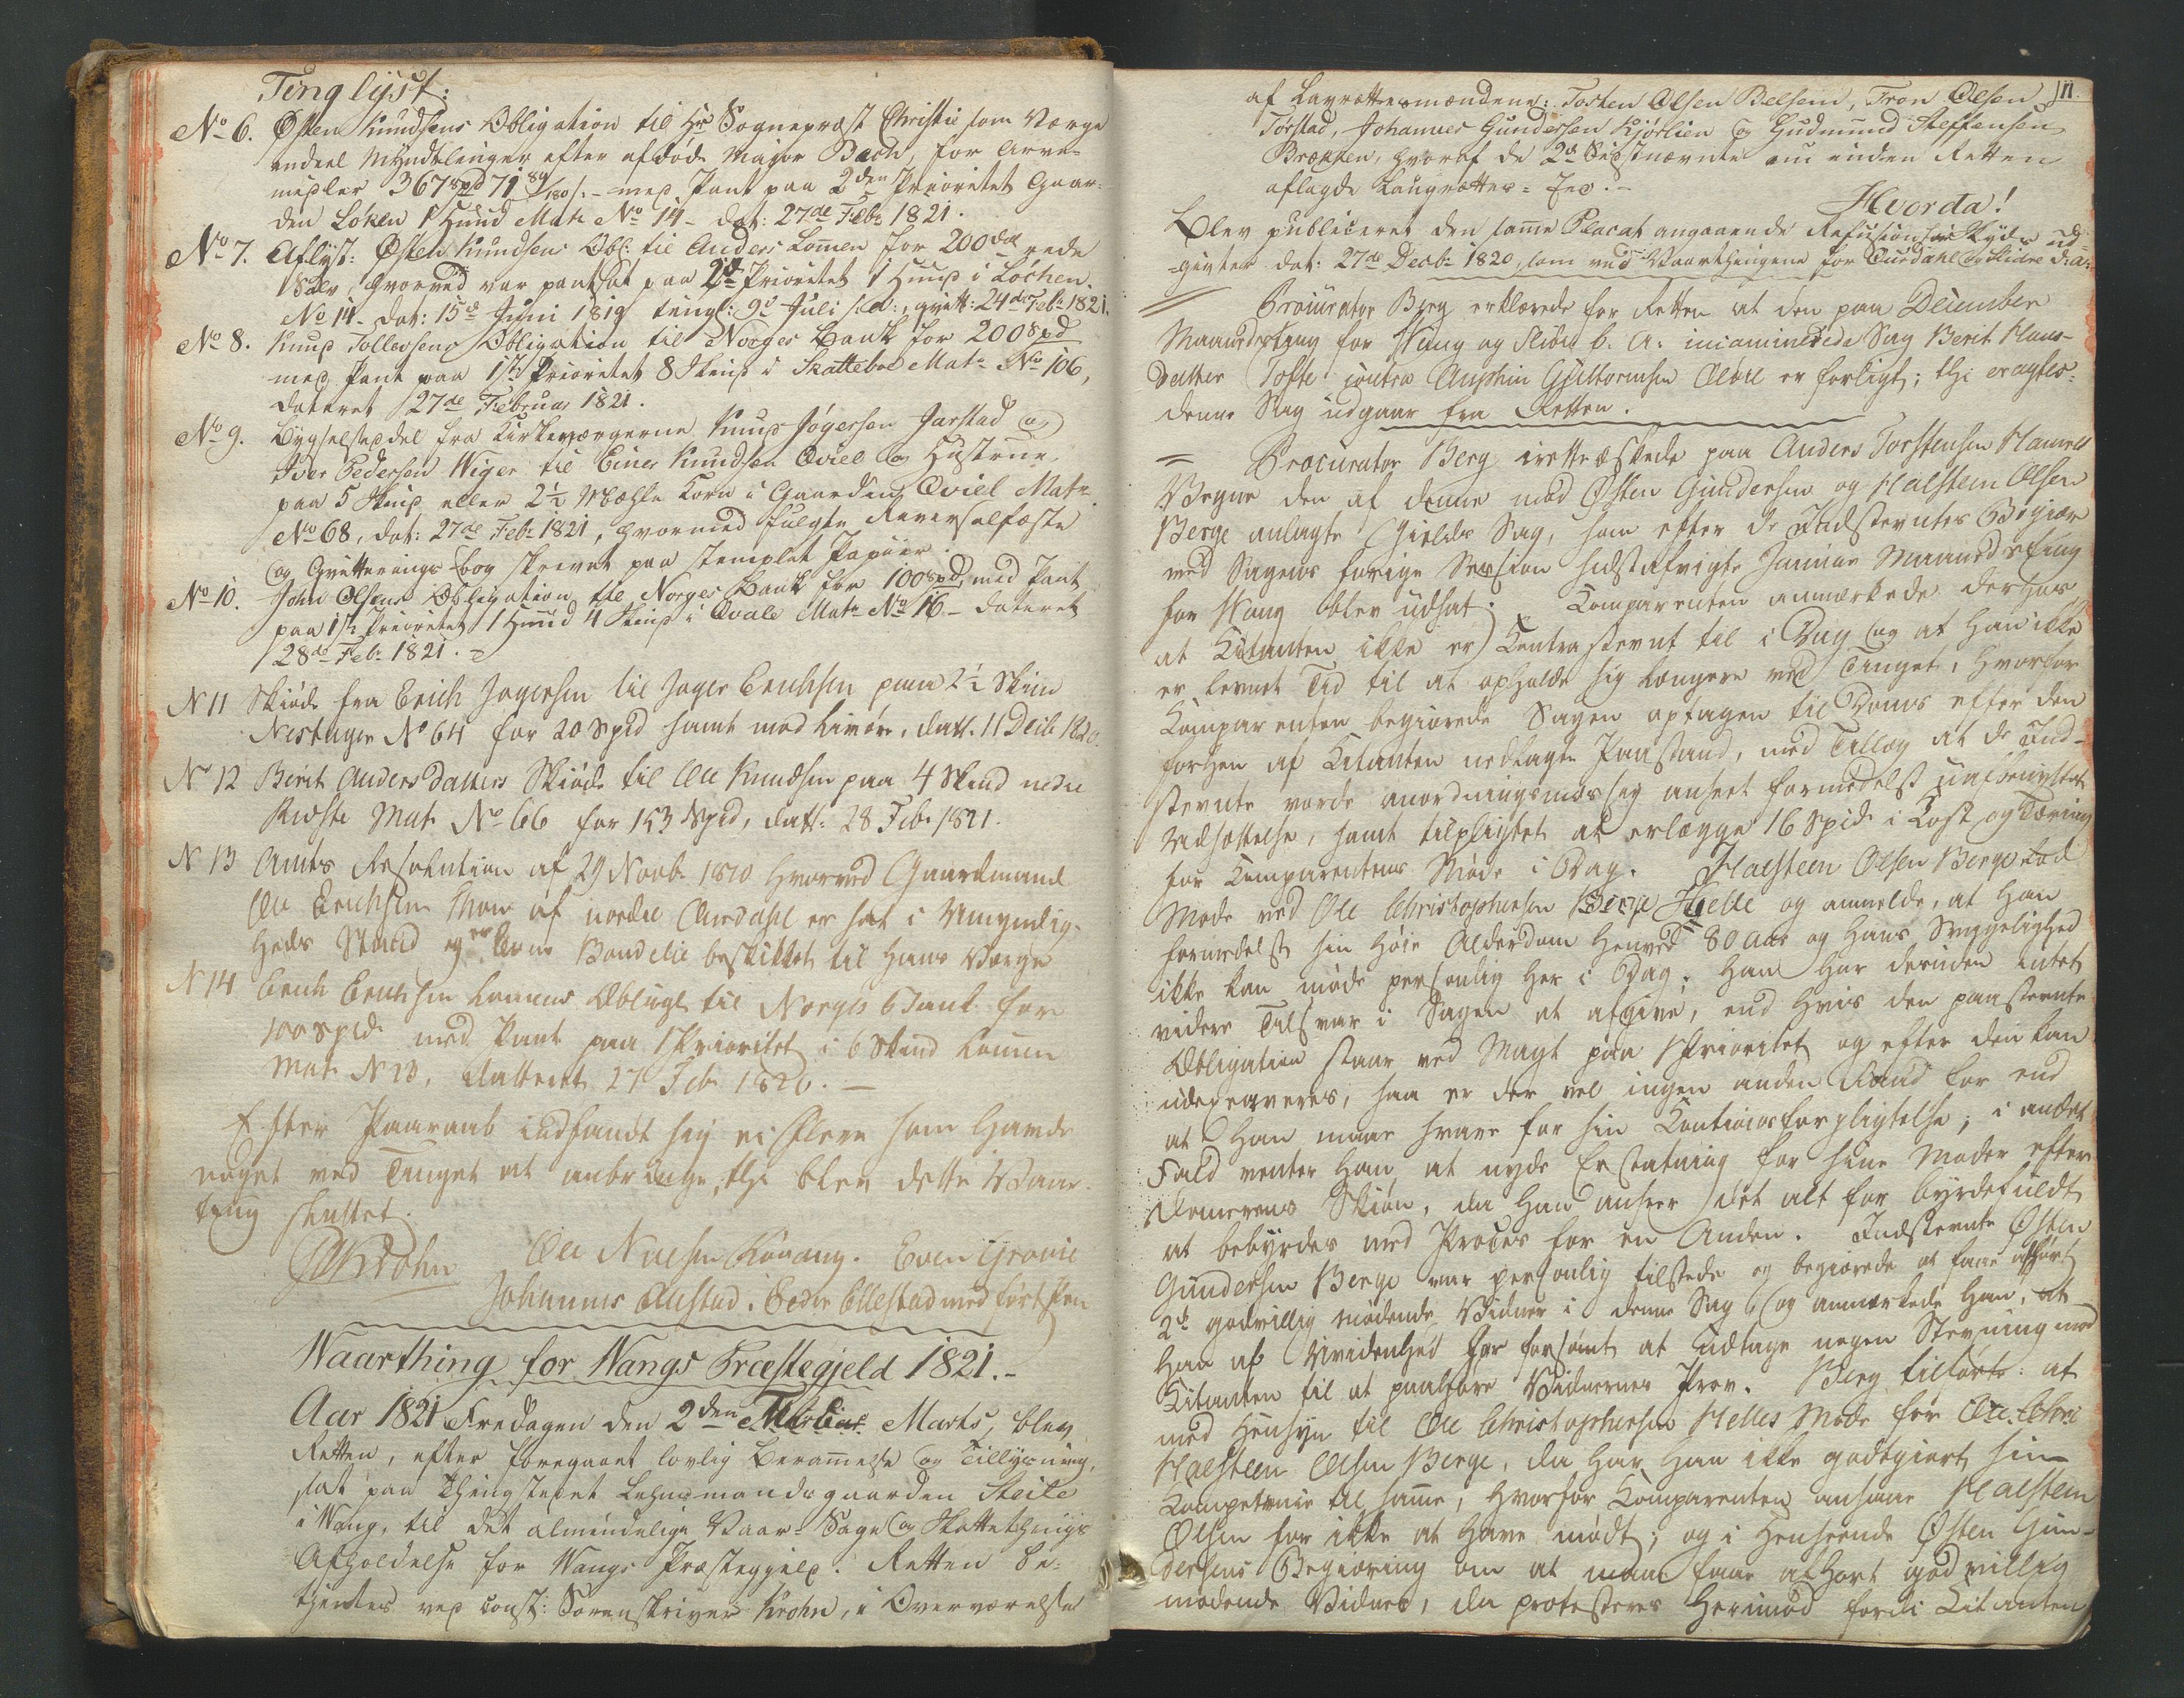 Tinglyst:
No 6. Østen Knudsens Obligation til Hr Sognepræst Christie som Værge
endeel Myndtlinger efter afdøde Major Bech, for Arve-
midler 367 Spd 71 89/180 s. – med Pant paa 2den Prioritet Gaar-
den Løken 1 Huud Matr No 14 – dat: 27de Febr 1821.
No 7. Aflyst: Østen Knudsens Obl: til Anders Lomen for 200 dlr rede
Sølv, hvorved var pantsat paa 2d Prioritet 1 Huud i Løchen.
No 14 – dat: 15de Juni 1819 tingl: 9d Juli s. A:, qvitt: 24de Febr 1821.
No 8. Knud Tollefsens Obligation til Norges Bank for 200 Spd
med Pant paa 1ste Prioritet 8 Skind i Skatteboe Matr No 106,
dateret 27de Februar 1821.
No 9. Bygselseddel fra Kirkeværgerne Knud Jøgersen Jarstad og
Iver Pedersen Wiger til Einer Knudsen Qviel og Hustrue
paa 5 Skind eller 2½ Korn i Gaarden Qviel Matr
No 68, dat: 27de Febr 1821, hvormed fulgte Reversalfæste
og Qvitterings-Bog skrevet paa stemplet Papiir.
No 10. John Olsens Obligation til Norges Bank for 100 Spd, med Pant
paa 1ste Prioritet 1 Huud 4 Skind i Qvale Matr No 16 – dateret
28de Febr 1821. –
N 11 Skiøde fra Erich Jogersen til Joger Erichsen paa 2½ Skind
Nestager No 64 for 20 Spd samt med Livøre, datt. 11 Decbr 1820.
No 12 Berit Andersdatters Skiøde til Ole Knudsen paa 4 Skind nedre
Mat. No 66 for 153 Spd, datt: 28 Febr 1821.
N 13 Amts Resolution af 29 Novbr 1820 hvorved Gaardmand
Ole Erichsen af nordre Aurdahl er sat i Umyndig-
heds Stand og er Arne Bondelie beskikket til hans Værge
N 14 Erich Erichsen Lomens Obligt til Norges Bank for
100 Spd med Pant paa 1 Prioritet i 6 Skind Lomen
Mat N 23, datteret 27 Febr 1820. –
Efter Paaraab indfandt sig ei flere som havde
noget ved Tinget at anbringe, thi blev dette Vaar-
ting sluttet.
JKrohn Ole Nielsen . Even Grovie
Johannes . Peder Ellestad med ført Pen
Waarthing for Wangs Præstegjeld 1821. –
Aar 1821 Fredagen den 2den Marts, blev
Retten, efter foregaaet lovlig Berammelse og Tillysning,
sat paa Thingstedet Lehnsmandsgaarden Steile
i Wang, til det almindelige Vaar- Sage og Skattethings
Afholdelse for Wangs Præstegjeld. Retten be-
tjentes ved const: Sorenskriver Krohn, i Overværelse
af Laugrettesmændene: Tosten Olsen Belsem, Tron Olsen
Tørstad, Johannes Gundersen Kjørlien og Gudmund Steffensen
Brækken, hvoraf de 2de Sidstnævnte nu inden Retten
aflagde Laugrettes-Eed. –
Hvorda!
Blev publiceret den samme Placat angaaende Refusion for Skyds ud-
-givter dat: 27de Decbr 1820, som ved Vaarthingene for Aurdahl og Slidre d: a:
Procurator Berg erklærede for Retten at den paa December
Maaneds Ting for Wang og Slidre f. A: incaminerede Sag Berit Hans-
datter Tofte contra Guttormsen er forligt; thi eragtes:
denne Sag udgaar fra Retten.
Procurator Berg irettæskede paa Anders Torstensen
Vegne den af denne mod Østen Gundersen og Halstein Olsen
Berge anlagte Gields Sag, som efter de Indstevntes Begiær
ved Sagens forrige Session sidstafvigte Januar Maanedsting
for Wang blev udsat. Komparenten anmærkede derhos
at Citanten ikke er Contrastevnt til i Dag og at han ikke
er levnet Tid til at opholde sig længere ved Tinget. Hvorfor
Komparenten begiærede Sagen optagen til Doms efter den
forhen af Citanten nedlagte Paastand, med Tillæg at de Ind-
stevnte vorde anordningsmæssig anseet formedelst unødvendig
Udsættelse, samt tilpligtet at erlægge 16 Spd i Kost og Tæring
for Komparentens Møde i Dag. Halsteen Olsen Berge lod
Møde ved Ole Christophersen Berge Helle og anmelde, at han
formedelst sin høie Alderdom henved 80 Aar og hans Svagelighed
ikke kan møde personlig her i Dag; han har desuden intet
videre Tilsvar i Sagen at afgive, end hvis den paastevnte
Obligation staar ved Magt paa 1 Prioritet og efter den kan
, saa er der vel ingen anden Raad for end
at han maae svare for sin Kautionsforpligtelse; i andet
Fald venter han at nyde Erstatning for sine Møder efter
Dommerens Skiøn, da han anseer det alt for byrdefuldt
at bebyrdes med Proces for en Anden. Indstevnte Østen
Gundersen Berge var personlig tilstede og begiærede at faae afhørt
2de godvillig mødende Vidner i denne Sag, og anmærkede han, at
han af Uvidenhed har forsømt at udtage nogen Stevning mod
Citanten til at paahøre Vidnernes Prov. Berg tilførte: at
med Hensyn til Ole Christophersen Helles Møde for
Halsteen Olsen Berge, da har han ikke godtgiort sin
Competence til samme, hvorfor Komparenten ansaae Halstein
Olsen for ikke at have mødt; og i Henseende Østen Gun-
dersens Begiæring om at maae faae afhørt godvillig
mødende Vidner, da protesteres herimod fordi Citanten